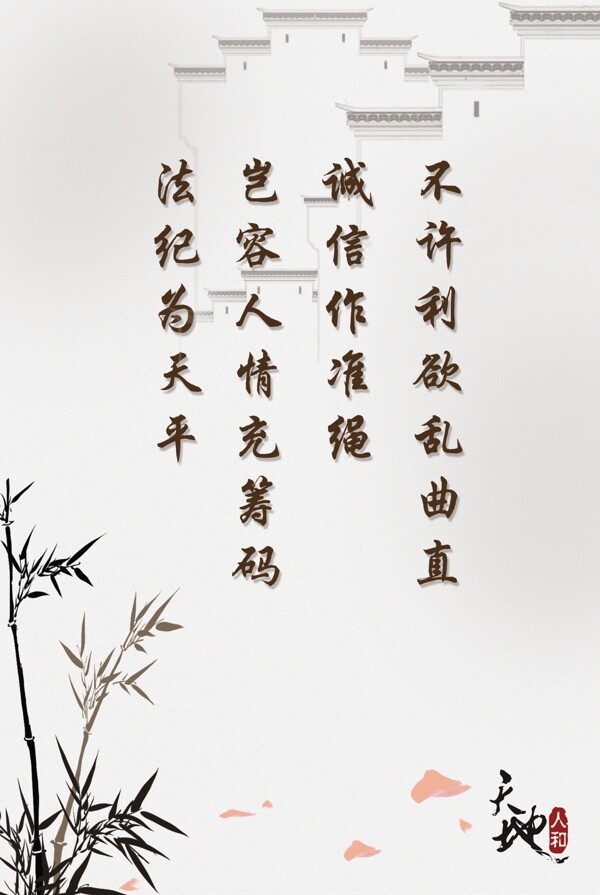 法纪为天平
岂容人情充筹码
诚信作准绳
不许利欲乱曲直
天地
人和